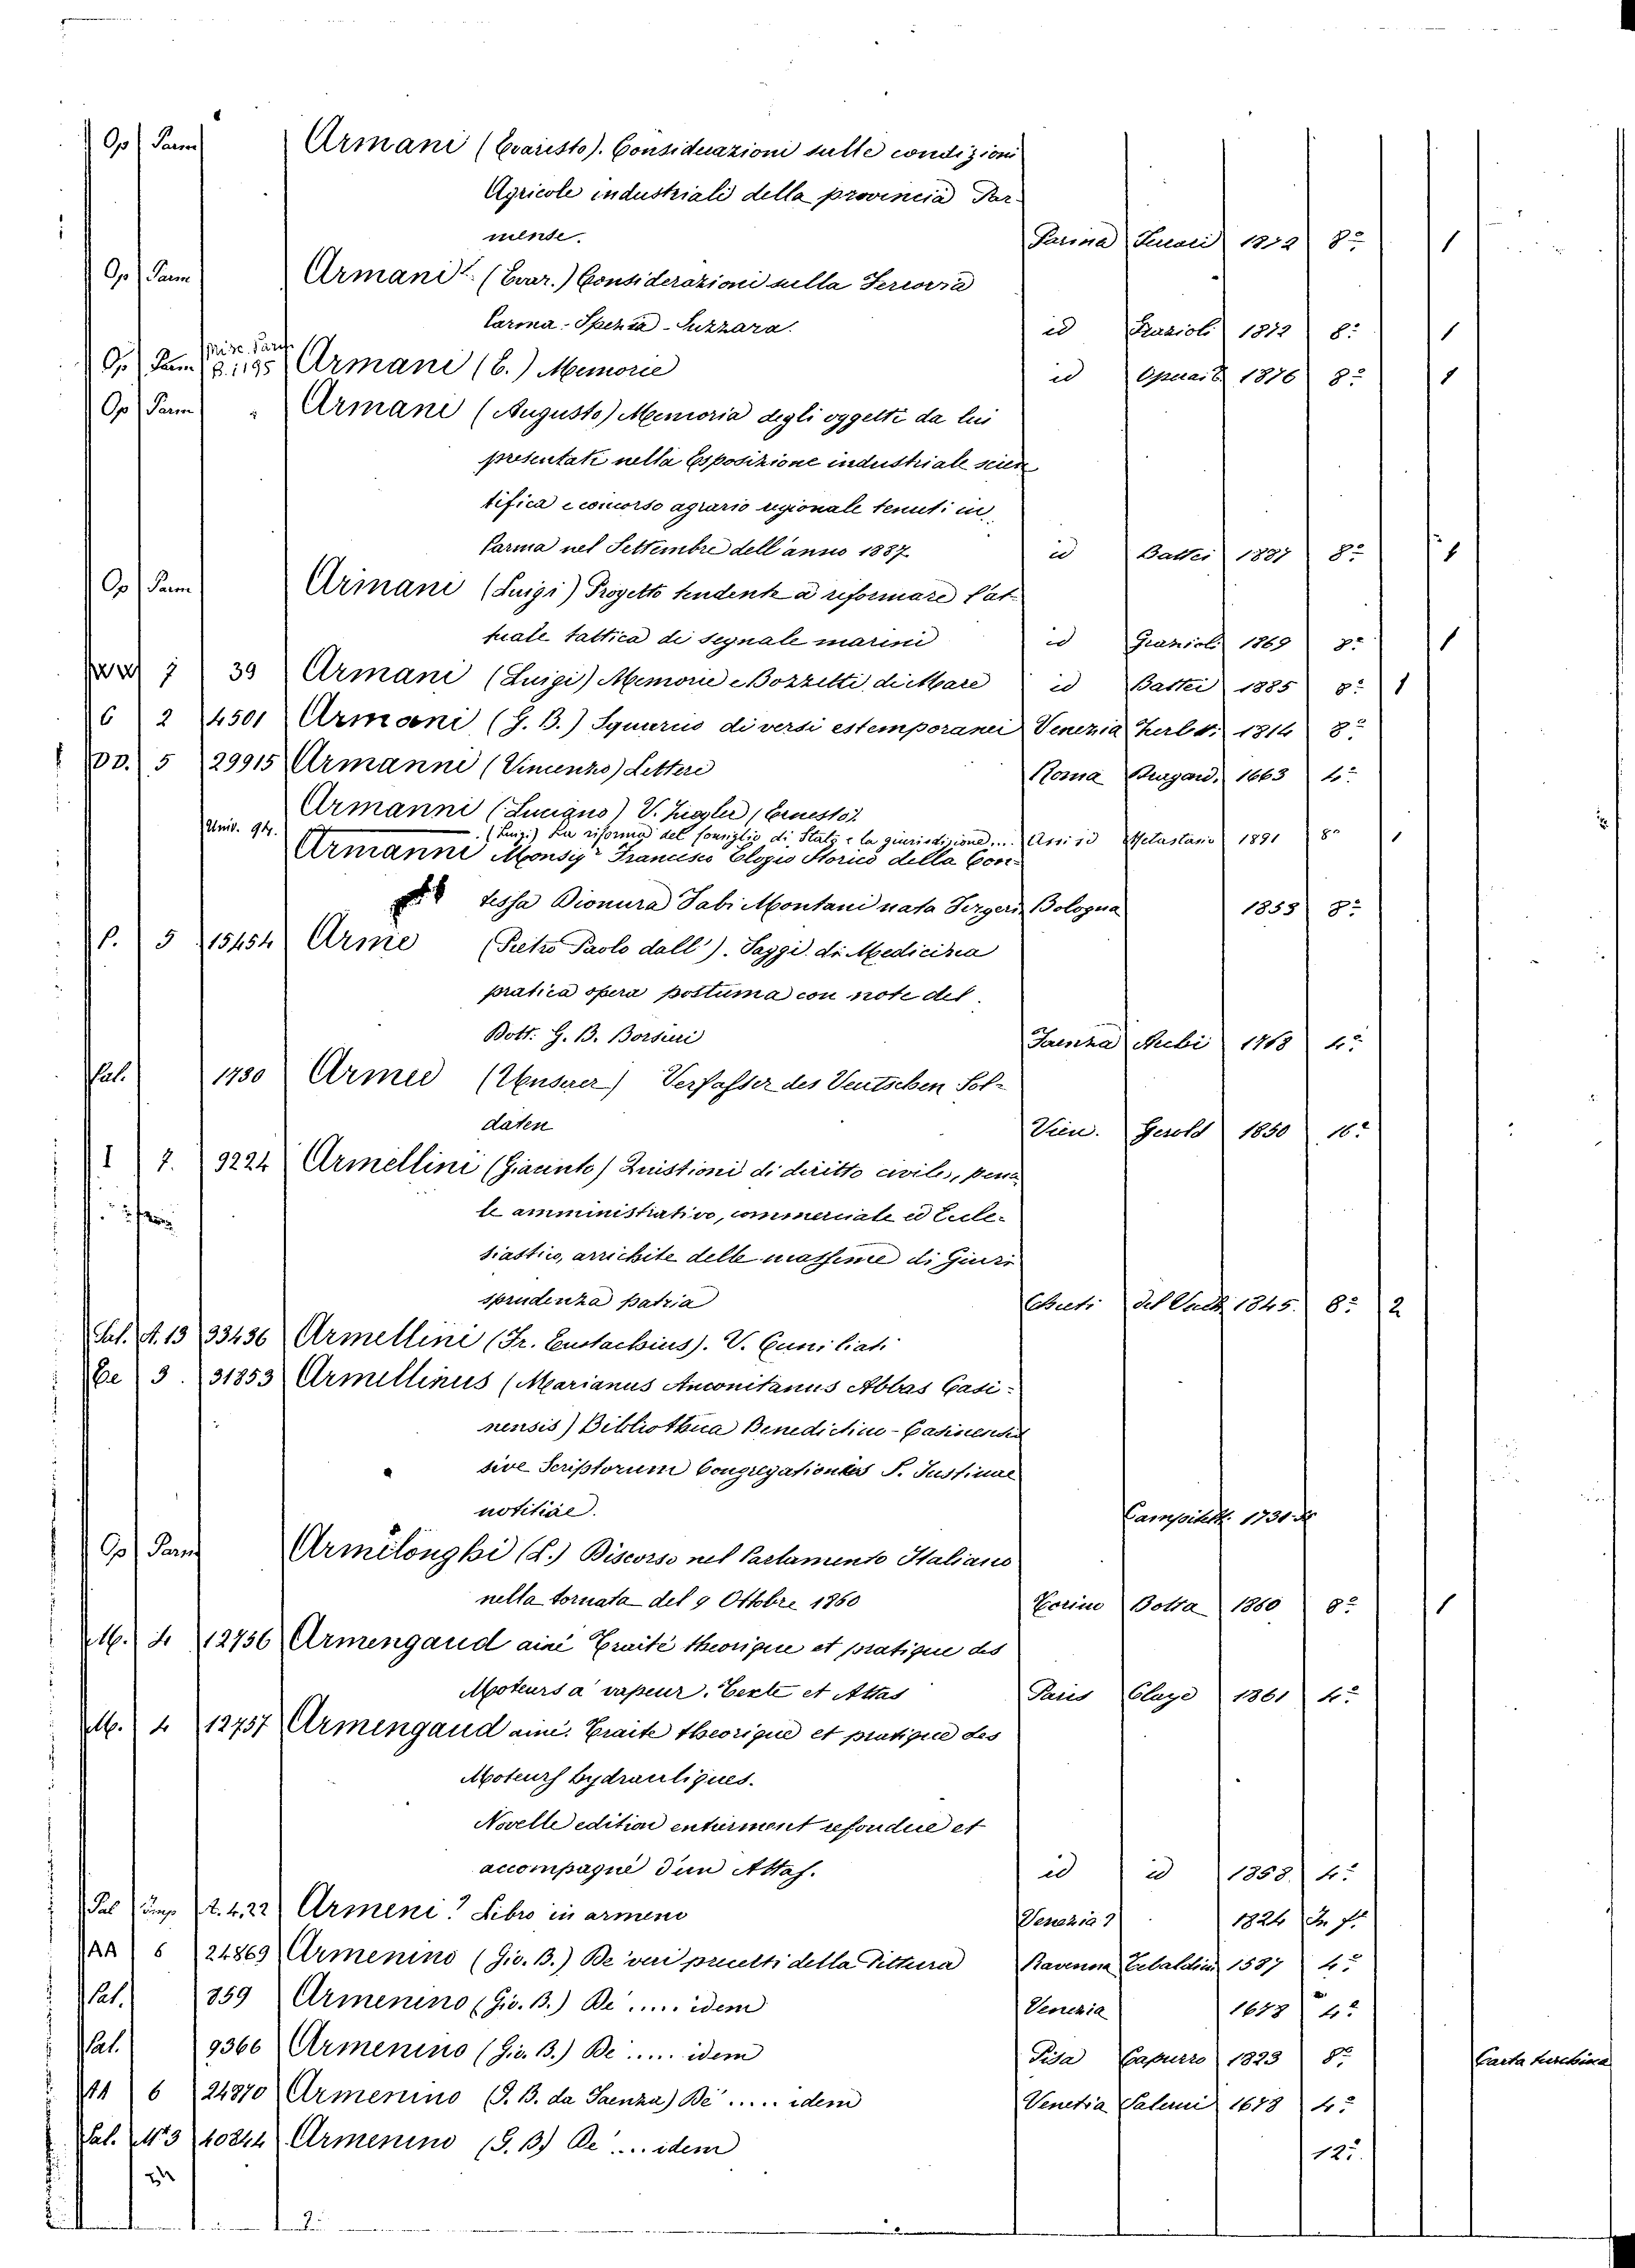 Op Parm Armani (Evaristo). Considerazioni sulle condizioni
Agricole industriali della provincia Par-
mense. Parma Ferrari 1872 8º 1
Op Parm Armani (Evar.) Considerazioni sulla Ferrovia
Parma-Spezia-Suzzara. id Grazioli 1872 8º 1
Misc. Parm.
Op Parm B. 1195 Armani (E.) Memorie id Operaia 1876 8º 1
Op Parm " Armani (Augusto) Memoria degli oggetti da lui
presentati nella Esposizione industriale scien
tifica e concorso agrario regionale tenuti in
Parma nel Settembre dell'anno 1887. id Battei 1887 8º 1
Op Parm Armani (Luigi) Progetto tendente a reformare l'at-
tuale tattica di segnale marini id Grazioli 1869 8º 1
7 39 Armani (Luigi) Memorie e Bozzetti di Mare id Battei 1885 8º 1
6 2 4501 Armani (G. B.) Squarcio di versi estemporanei Venezia Zerletti 1814 8º
DD. 5 29915 Armanni (Vincenzo) Lettere Roma 1663 4º
Armanni (Luciano) V. Ziegler (Ernesto).
Univ. 94. — (Luigi) La riforma del Consiglio di Stato e la giurisdizione.... Assisi Metastasio 1891 8º 1
Armanni Monsigr Francesco Elogio Storico della Con-
tessa Dionura Fabi Montani nata Sergeri. Bologna 1855 8º
P. 5 15454 Arme (Pietro Paolo dall'). Saggi di Medicina
pratica opera postuma con note del
Dott. G. B. Borsieri Faenza Archi 1768 4º
Pal. 1730 Armee (Unserer) Verfasser des Deutschen Sol-
daten Vien. Gerold 1850 16º
I 7. 9224 Armellini (Giacinto) Quistioni di diritto civile, pena
le amministrativo, commerciale ed Eccle-
siastico, arrichite delle massime di Giuri
sprudenza patria Chieti del Vecch 1845. 8º 2
Sal. A. 13 33436 Armellini (Fr. Eustachius). V. Cuniliati
Ee 3. 31853 Armellinus (Marianus Anconitanus Abbas Casi-
nensis) Bibliotheca Benedictino-Casinensis
sive Scriptorum Congregationis S. Justinae
notitiae. 1731
Op Parm Armelonghi (L.) Discorso nel Parlamento Italiano
nella tornata del 9 Ottobre 1860 Torino Botta 1860 8º 1
M. 4 12756 Armengaud ainé Traité theorique et pratique des
Moteurs a vapeur. Texte et Atlas Paris Claye 1861 4º
M. 4 12757 Armengaud ainé. Traite theorique et pratique des
Moteurs hydrauliques.
Novelle edition entierment refondue et
accompagné d'un Atlas. id id 1858. 4º
Pal R. 4. 22 Armeni? Libro in armeno Venezia? 1824 In fº
AA 6 24869 Armenino (Gio. B.) De' veri precetti della Pittura Ravenna Tebaldini 1587 4º
Pal. 859 Armenino (Gio. B.) De' ..... idem Venezia 1678 4º
Pal. 9366 Armenino (Gio. B.) De' ..... idem Pisa Capurro 1823 8º Carta turchina
AA 6 24870 Armenino (G. B. da Faenza) De' ..... idem Venetia Salerni 1678 4º
Pal. 40844 Armenino (G. B.) De' .... idem 12º